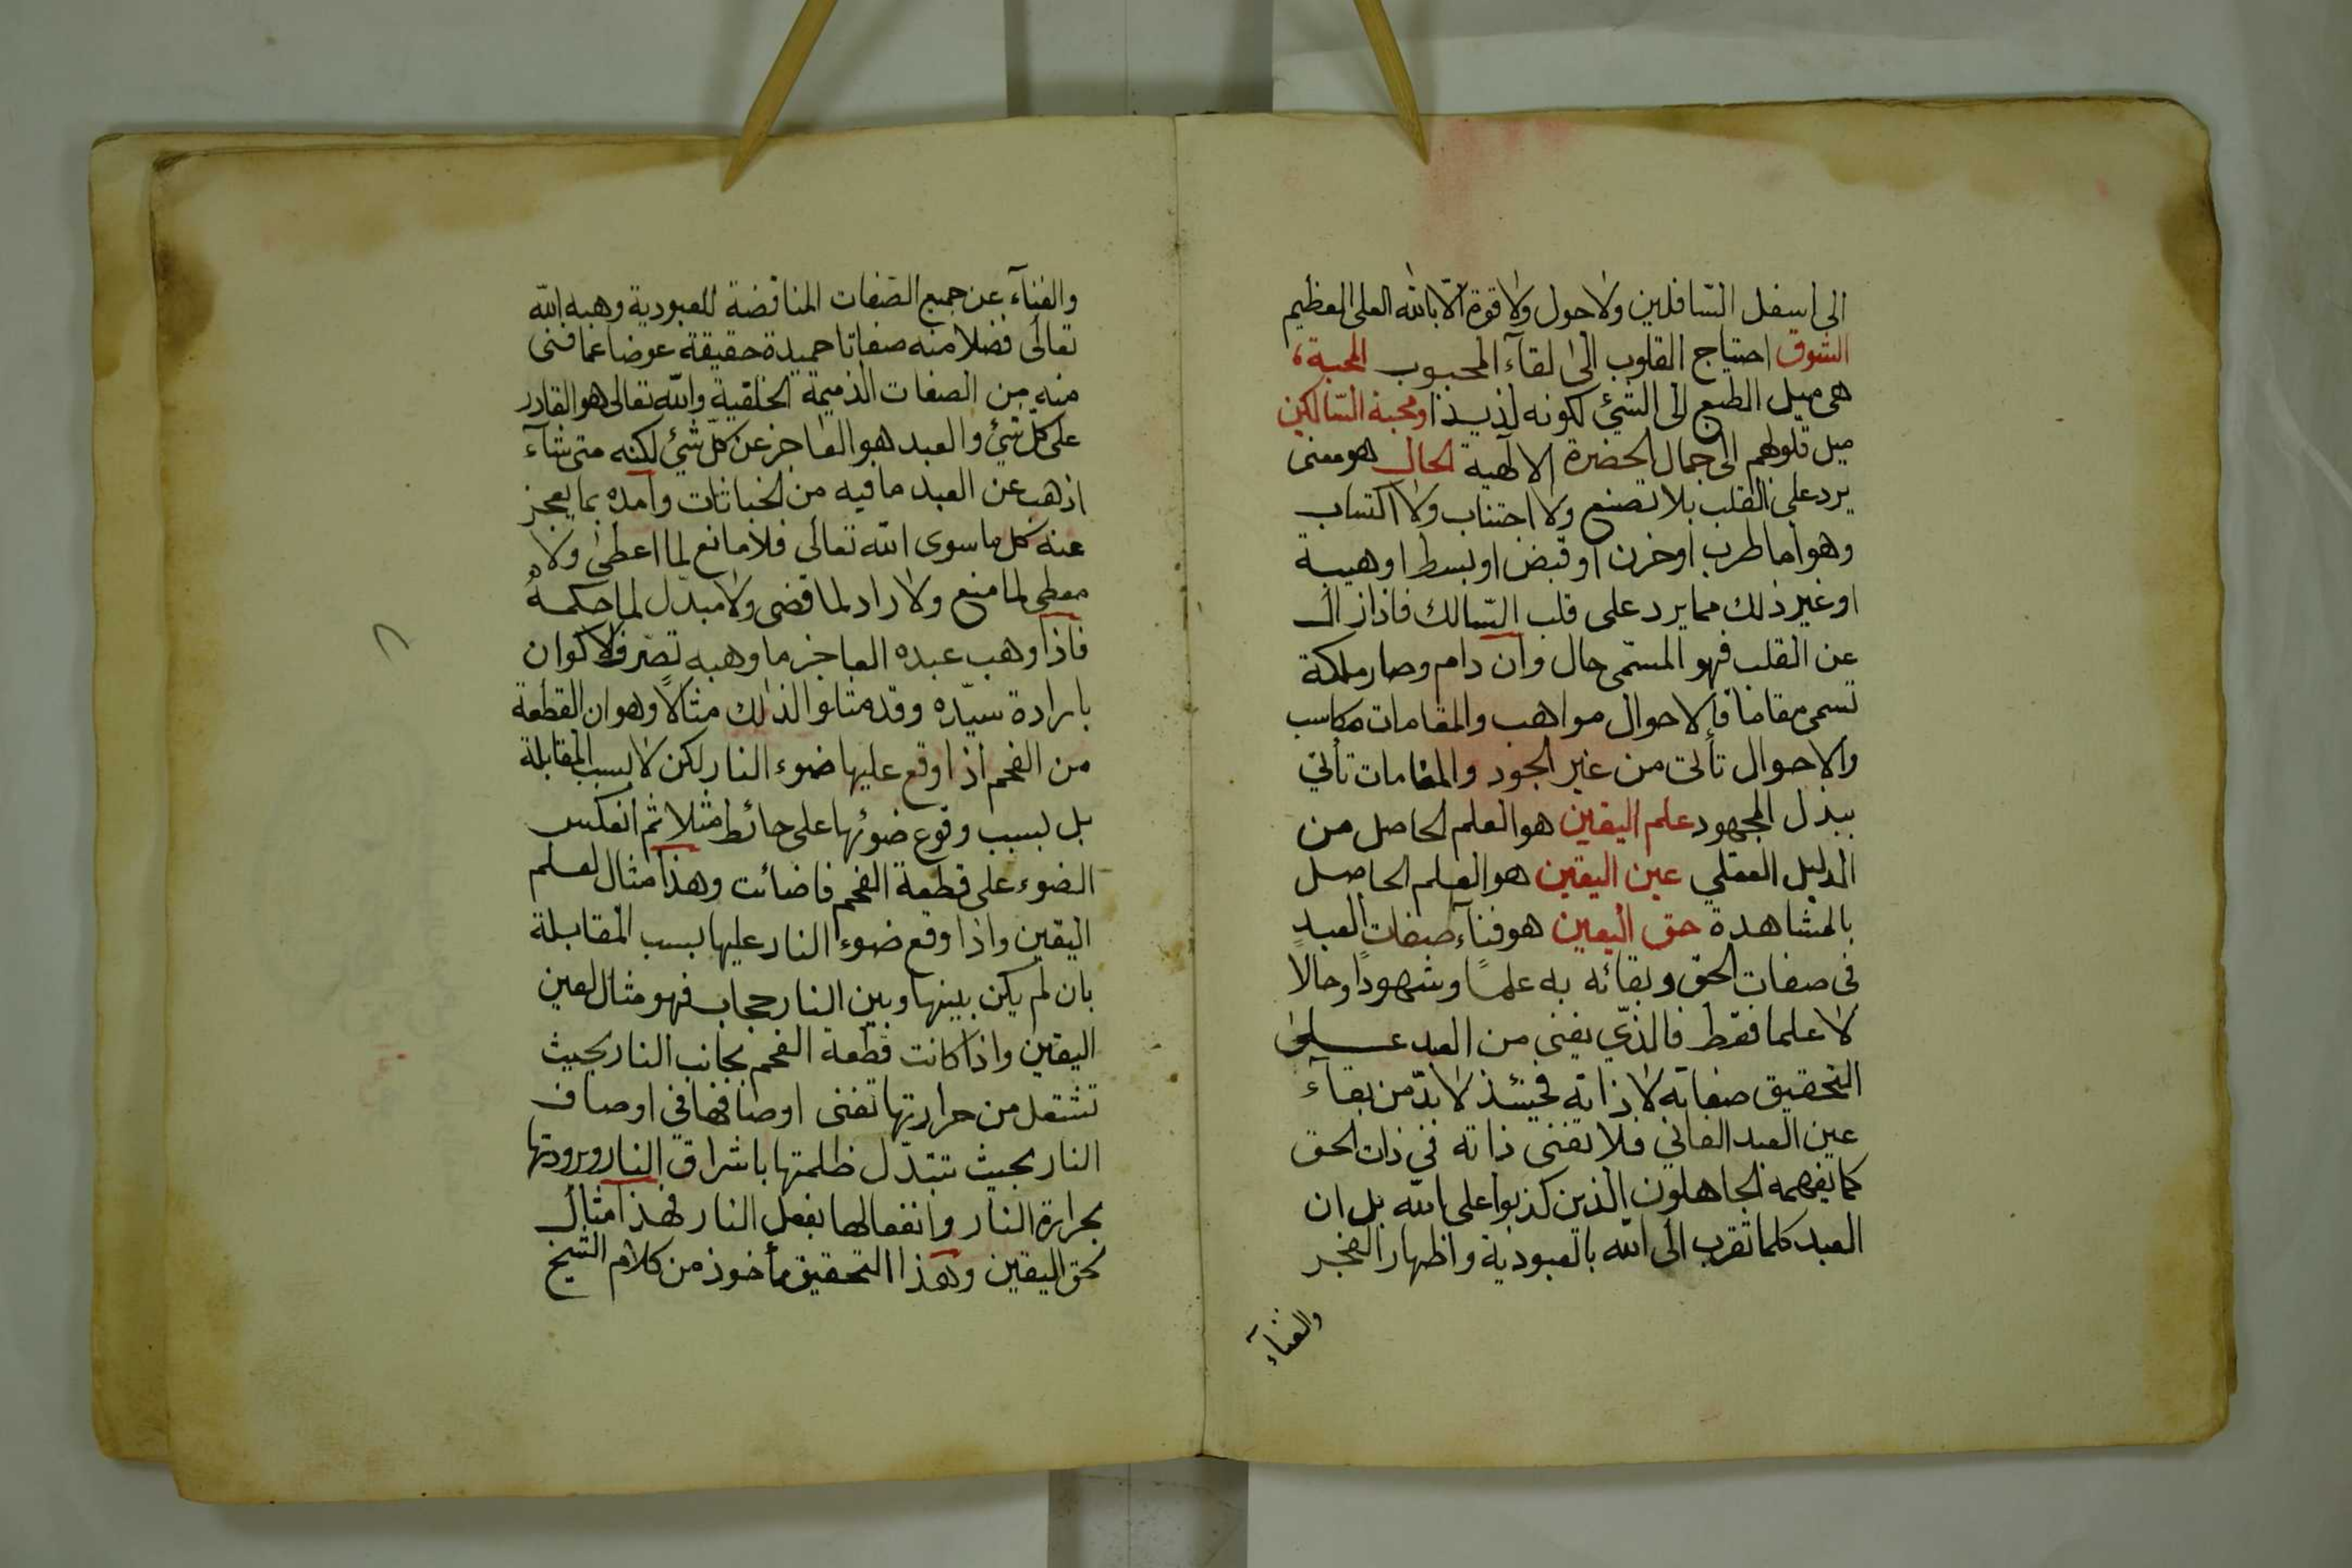 الى اسفل السّافلين ولا حول ولا قوة الّا بالله العلى العظيم
الشوق احتياج القلوب الى لقاء المحبوب المحبة
هى ميل الطبع الى الشئ لكونه لذيذا ومحبة السّالكين
ميل قلوبهم الى جمال الحضرة الالهية الحال هو معنى
يرد على القلب بلا تصنع ولا اجتناب ولا اكتساب
وهو اما طرب او حزن او قبض او بسط او هيبة
او غير ذلك مما يرد على قلب السّالك فاذا زال
عن القلب فهو المسمّى حال وان دام وصار ملكة
تسمى مقاما فالاحوال مواهب والمقامات مكاسب
والاحوال تأتى من غير الجود والمقامات تأتي
ببذل المجهود علم اليقين هو العلم الحاصل من
الدليل العقلي عين اليقين هو العلم الحاصل
بالمشاهدة حق اليقين هو فنآء صفات العبد
فى صفات الحق وبقائه به علمًا وشهودًا وحالًا
لا علما فقط فالذي يفنى من العبد على
التحقيق صفاته لا ذاته فحينئذ لا بدّ من بقآء
عين العبد الفاني فلا تفنى ذاته في ذات الحق
كما يفهمه الجاهلون الذين كذبوا على الله بل ان
العبد كلما تقرب الى الله بالعبودية واظهار العجز
والفنآء
والفنآء عن جميع الصّفات المناقضة للعبودية وهبه الله
تعالى فضلا منه صفاتا حميدة حقيقة عوضا عما فنى
منه من الصفات الذميمة الخلقية والله تعالى هو القادر
على كلّ شئ والعبد هو العاجز عن كلّ شئ لكنه متى شآء
اذهب عن العبد ما فيه من الخباثات وامده بما يعجز
عنه كل ما سوى الله تعالى فلا مانع لما اعطى ولا
معطى لما منع ولا راد لما قضى ولا مبدّل لما حكم
فاذا وهب عبده العاجز ما وهبه تصّرف الاكوان
بارادة سيّده وقد مثلوا لذلك مثالًا وهو ان القطعة
من الفحم اذا وقع عليها ضوء النار لكن لا بسبب المقابلة
بل بسبب وقوع ضوئها على حائط مثلا ثم انعكس
الضوء على قطعة الفحم فاضائت وهذا مثال لعلم
اليقين واذا وقع ضوء النار عليها بسبب المقابلة
بان لم يكن بينها وبين النار حجاب فهو مثال لعين
اليقين واذا كانت قطعة الفحم بجانب النار بحيث
تشتعل من حرارتها تفنى اوصافها في اوصاف
النار بحيث تتبدّل ظلمتها باشراق النار وبرودتها
بحرارة النار وانفعالها بفعل النار فهذا مثال
لحق اليقين وهذا التحقيق مأخوذ من كلام الشيخ